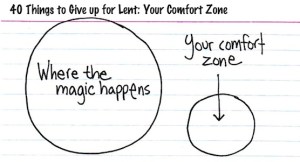 40 Things to Give up for Lent: Your Comfort Zone
Where the
magic happens
Your comfort
zone